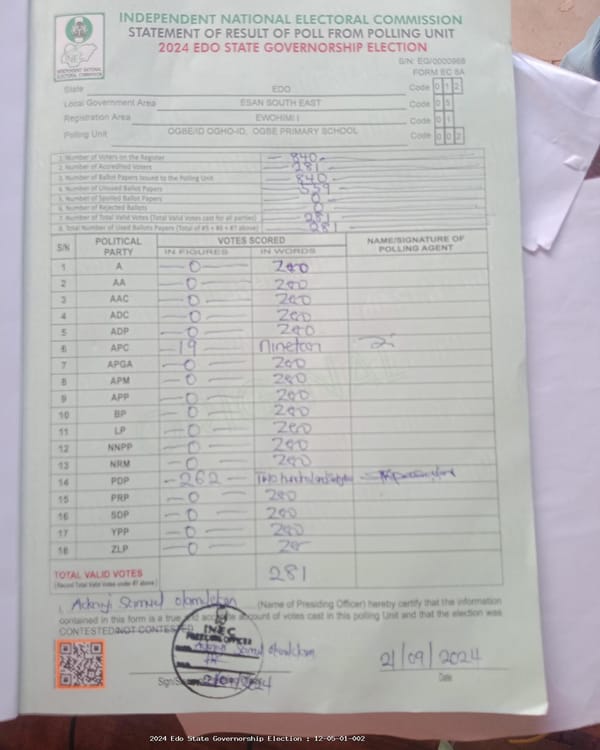 INDEPENDENT NATIONAL ELECTORAL COMMISSION
STATEMENT OF RESULT OF POLL FROM POLLING UNIT
2024 EDO STATE GOVERNORSHIP ELECTION
INEC
INDEPENDENT NATIONAL
ELECTORAL COMMISSION
S/N: EG/0000968
FORM EC 8A
State EDO Code 0 1 2
Local Government Area ESAN SOUTH EAST Code 0 5
Registration Area EWOHIMI I Code 0 1
Polling Unit OGBE/ID OGHO-ID, OGBE PRIMARY SCHOOL Code 0 0 2
1. Number of Voters on the Register 840
2. Number of Accredited Voters 281
3. Number of Ballot Papers Issued to the Polling Unit 840
4. Number of Unused Ballot Papers 559
5. Number of Spoiled Ballot Papers 0
6. Number of Rejected Ballots 0
7. Number of Total Valid Votes (Total Valid Votes cast for all parties) 281
8. Total Number of Used Ballots Papers (Total of #5 + #6 + #7 above) 281
S/N POLITICAL PARTY VOTES SCORED NAME/SIGNATURE OF POLLING AGENT
IN FIGURES IN WORDS
1 A 0 Zero
2 AA 0 Zero
3 AAC 0 Zero
4 ADC 0 Zero
5 ADP 0 Zero
6 APC 19 Nineteen
7 APGA 0 Zero
8 APM 0 Zero
9 APP 0 Zero
10 BP 0 Zero
11 LP 0 Zero
12 NNPP 0 Zero
13 NRM 0 Zero
14 PDP 262 Two hundred and
15 PRP 0 Zero
16 SDP 0 Zero
17 YPP 0 Zero
18 ZLP 0
TOTAL VALID VOTES 281
(Record Total Valid Votes under #7 above)
I, Samuel (Name of Presiding Officer) hereby certify that the information
contained in this form is a true and account of votes cast in this polling Unit and that the election was
CONTESTED/NOT CONTESTED
INEC
PRESIDING OFFICER
21/09/2024
21/09/2024
Date
2024 Edo State Governorship Election : 12-05-01-002